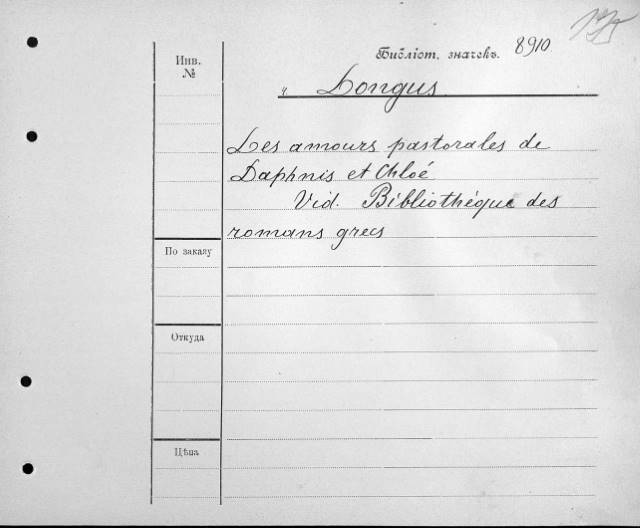 Инв.
№
Библіот. значекъ. 8910
Longus
Les amours pastorales de
Daphnis et Chloé
Vid. Bibliothéque des
romans grecs
По заказу
Откуда
Цѣна